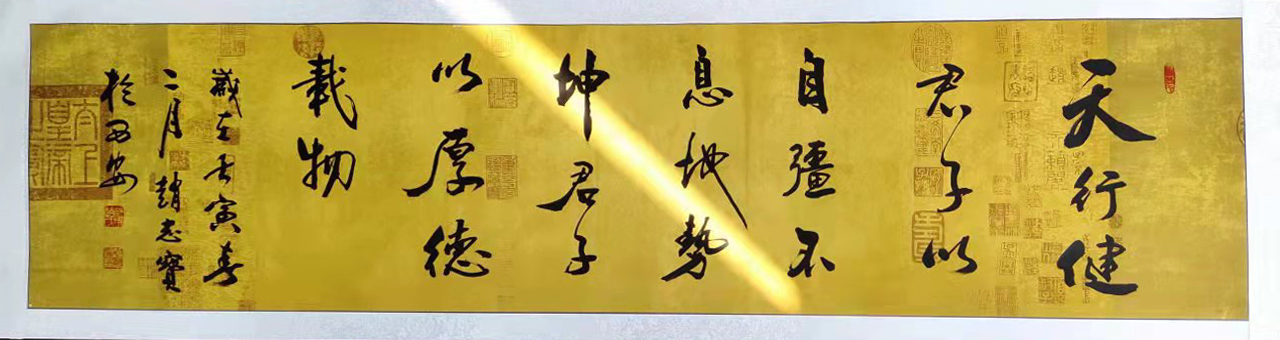 天行健
君子以
自彊不
息地勢
坤君子
以厚德
載物
歲在壬寅春
二月趙志寶
於西安